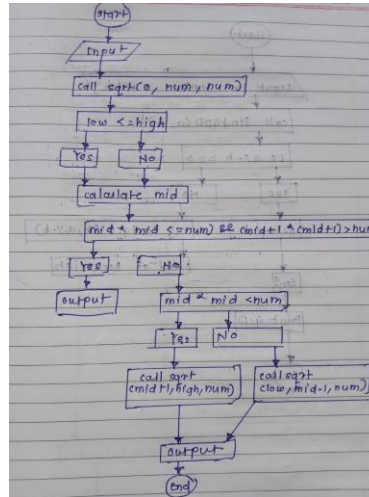 start
Input
call sqrt(0, num, num)
low <= high
Yes No
calculate mid
mid * mid <= num) && (mid+1 * (mid+1) > num
Yes No
output
mid * mid < num
Yes No
call sqrt
(mid+1, high, num)
call sqrt
(low, mid-1, num)
output
end